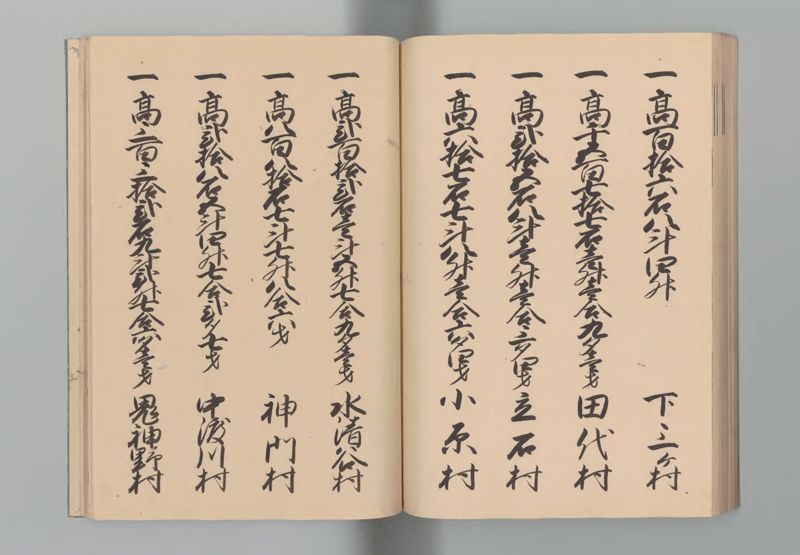 一 高百拾六石八斗四升 下三ヶ村
一 高千五百七拾七石壱升壱合九夕壱才 田代村
一 高弐拾五石八斗壱升壱合三夕四才 立石村
一 高六拾七石七斗八升壱合六夕四才 小原村
一 高弐百拾弐石壱斗五升七合九夕壱才 水清谷村
一 高八百八拾石七斗七升八合六才 神門村
一 高弐拾八石五斗四升七合弐夕七才 中渡川村
一 高三百三拾弐石九斗弐升七合六夕壱才 鬼神野村